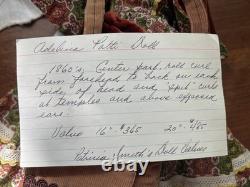 Adelina Patti Doll
1860's, Center part. roll curl
from forehead to back on each
side of head and "spit" curls
at temples and above exposed
ears.
Value 16" - $365 20" - $485
Patricia Smith's Doll Values